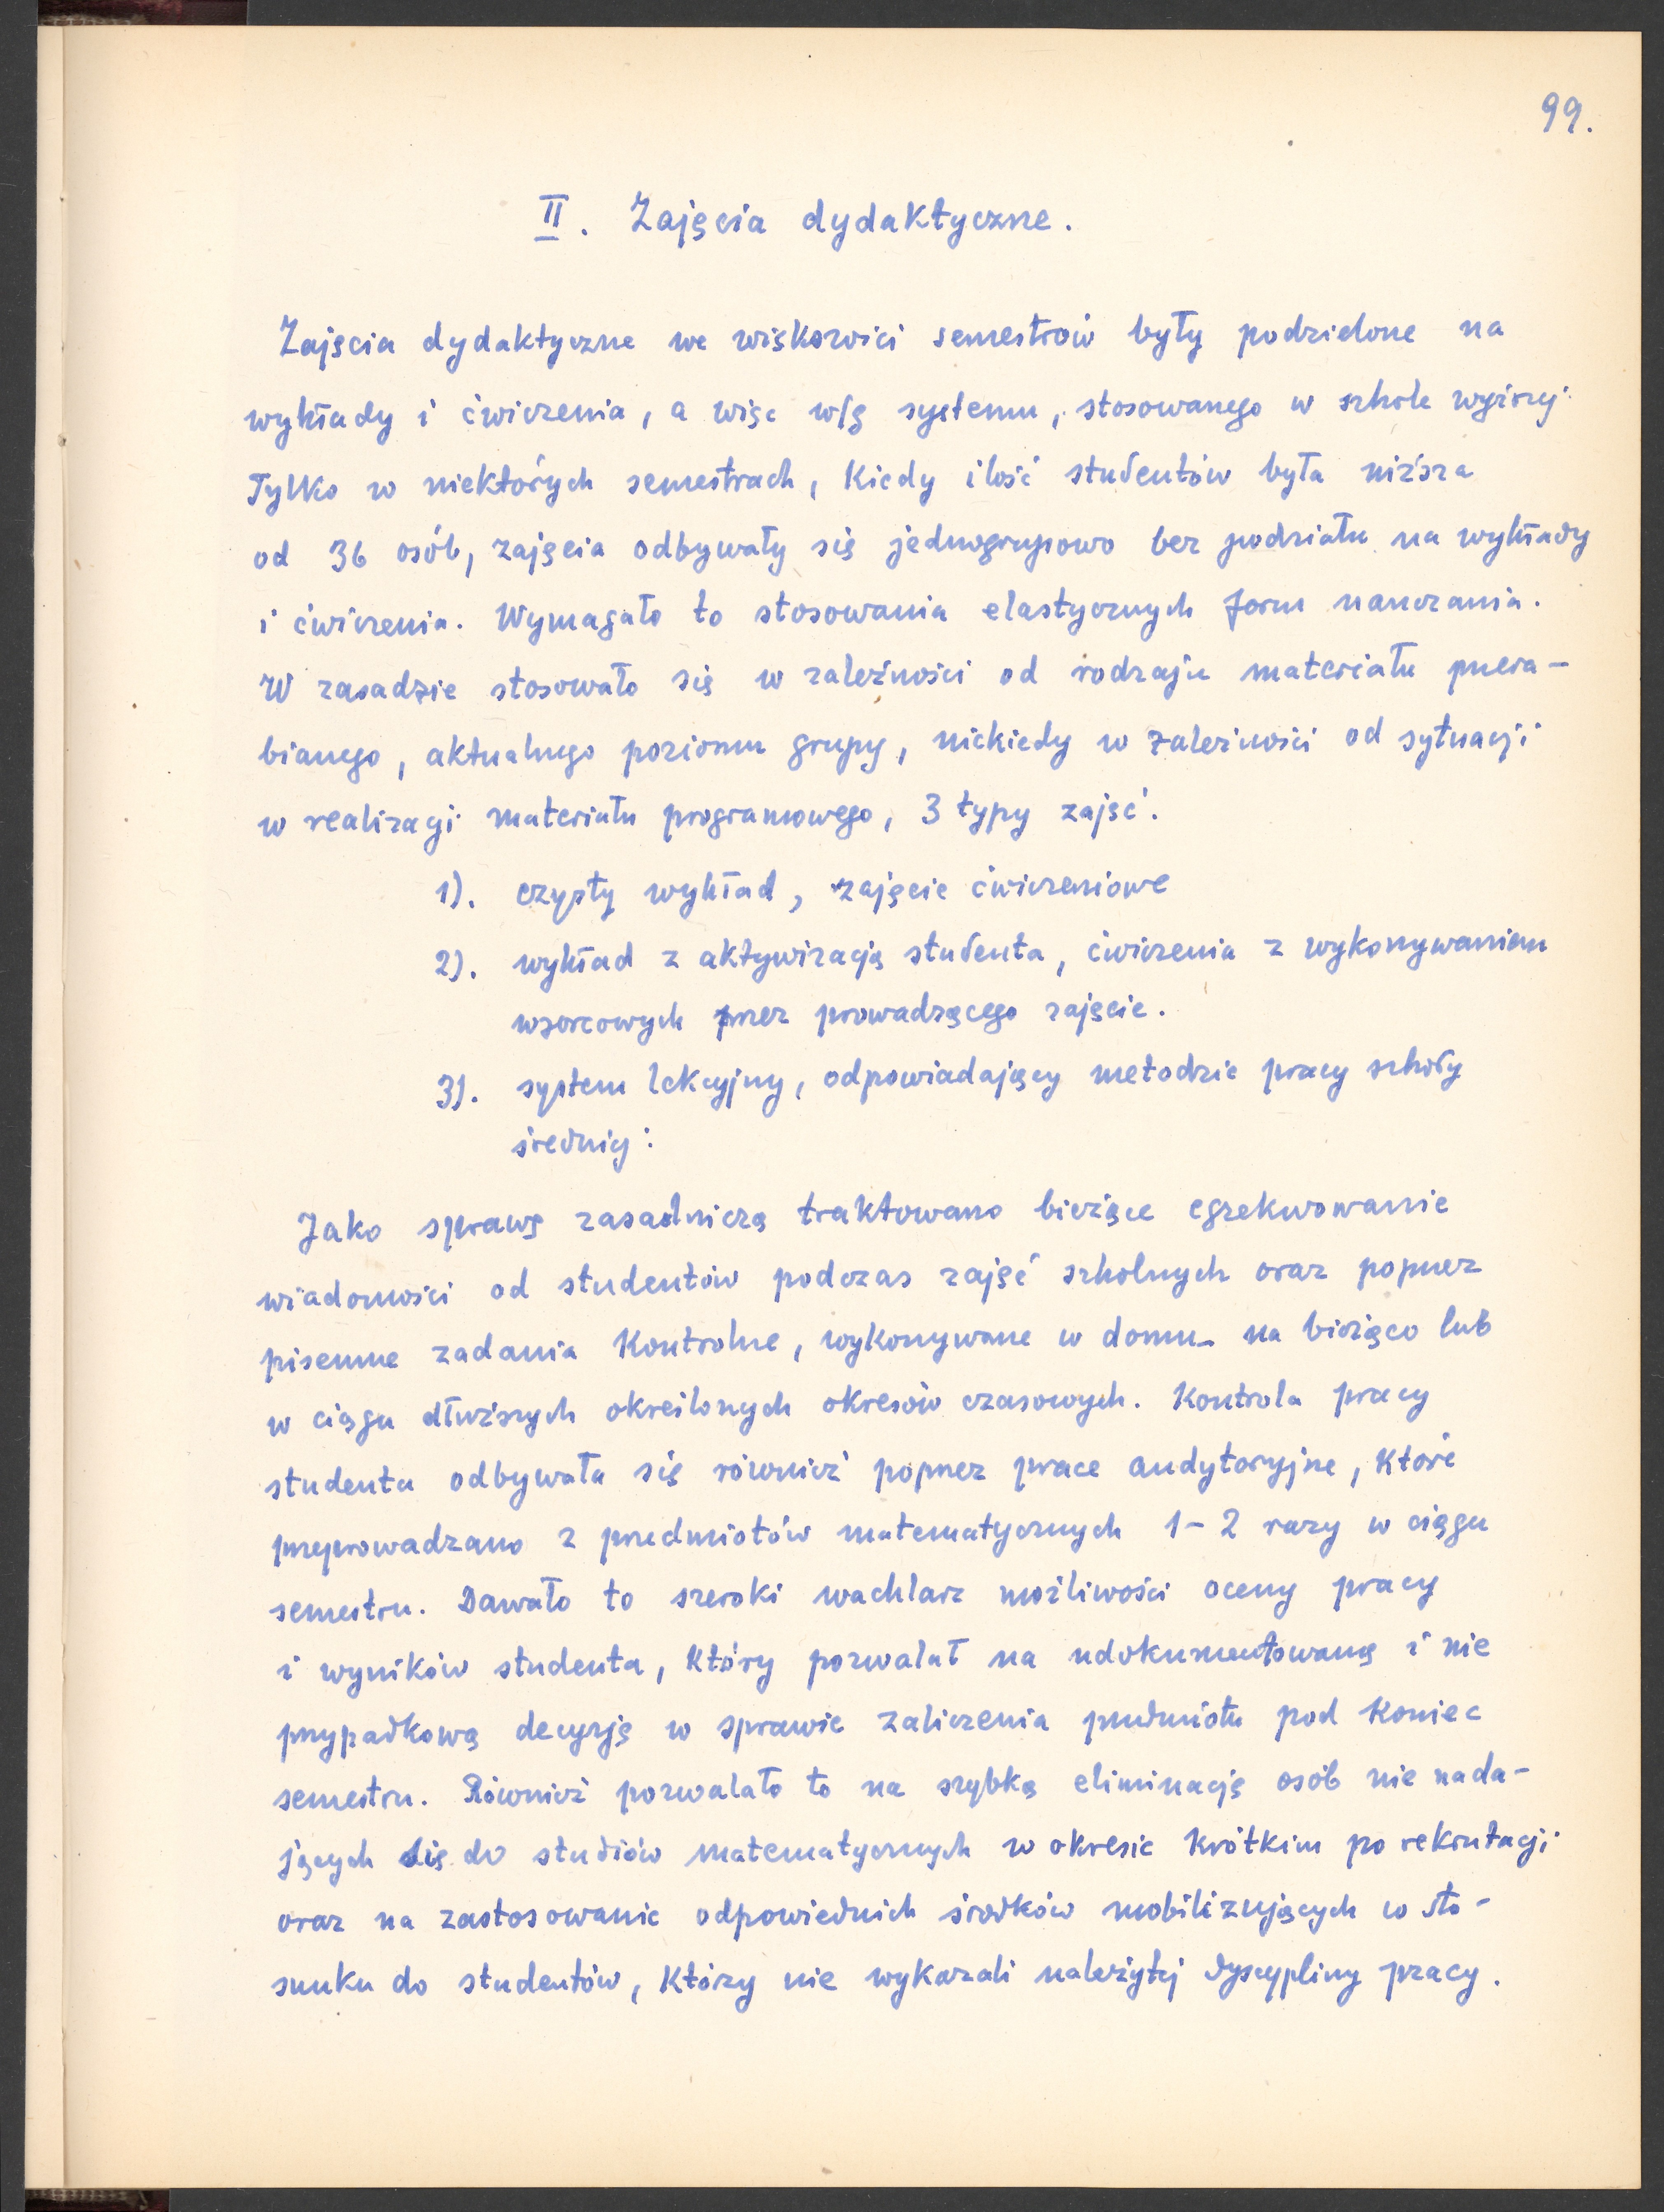 99.
II. Zajęcia dydaktyczne.
Zajęcia dydaktyczne we większości semestrów były podzielone na
wykłady i ćwiczenia, a więc w/g systemu, stosowanego w szkole wyższej.
Tylko w niektórych semestrach, kiedy ilość studentów była niższa
od 36 osób, zajęcia odbywały się jednogrupowo bez podziału na wykłady
i ćwiczenia. Wymagało to stosowania elastycznych form nauczania.
W zasadzie stosowało się w zależności od rodzaju materiału przera-
bianego, aktualnego poziomu grupy, niekiedy w zależności od sytuacji
w realizacji materiału programowego, 3 typy zajęć.
1). czysty wykład, zajęcie ćwiczeniowe
2). wykład z aktywizacją studenta, ćwiczenia z wykonywaniem
wzorcowych przez prowadzącego zajęcie.
3). system lekcyjny, odpowiadający metodzie pracy szkoły
średniej.
Jako sprawę zasadniczą traktowano bieżące egzekwowanie
wiadomości od studentów podczas zajęć szkolnych oraz poprzez
pisemne zadania kontrolne, wykonywane w domu na bieżąco lub
w ciągu dłuższych określonych okresów czasowych. Kontrola pracy
studenta odbywała się również poprzez prace audytoryjne, które
przeprowadzano z przedmiotów matematycznych 1-2 razy w ciągu
semestru. Dawało to szeroki wachlarz możliwości oceny pracy
i wyników studenta, który pozwalał na udokumentowaną i nie
przypadkową decyzję w sprawie zaliczenia przedmiotu pod koniec
semestru. Również pozwalało to na szybką eliminację osób nie nada-
jących się do studiów matematycznych w okresie krótkim po rekrutacji
oraz na zastosowanie odpowiednich środków mobilizujących w sto-
sunku do studentów, którzy nie wykazali należytej dyscypliny pracy.